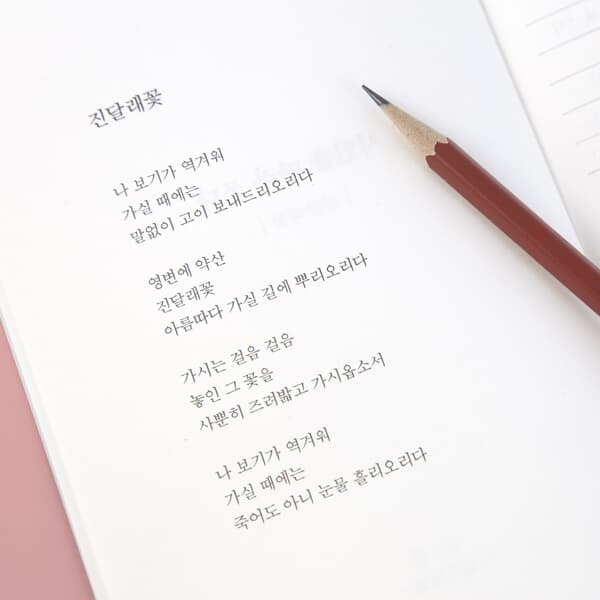 진달래꽃
나 보기가 역겨워
가실 때에는
말없이 고이 보내드리오리다
영변에 약산
진달래꽃
아름따다 가실 길에 뿌리오리다
가시는 걸음 걸음
놓인 그 꽃을
사뿐히 즈려밟고 가시옵소서
나 보기가 역겨워
가실 때에는
죽어도 아니 눈물 흘리오리다